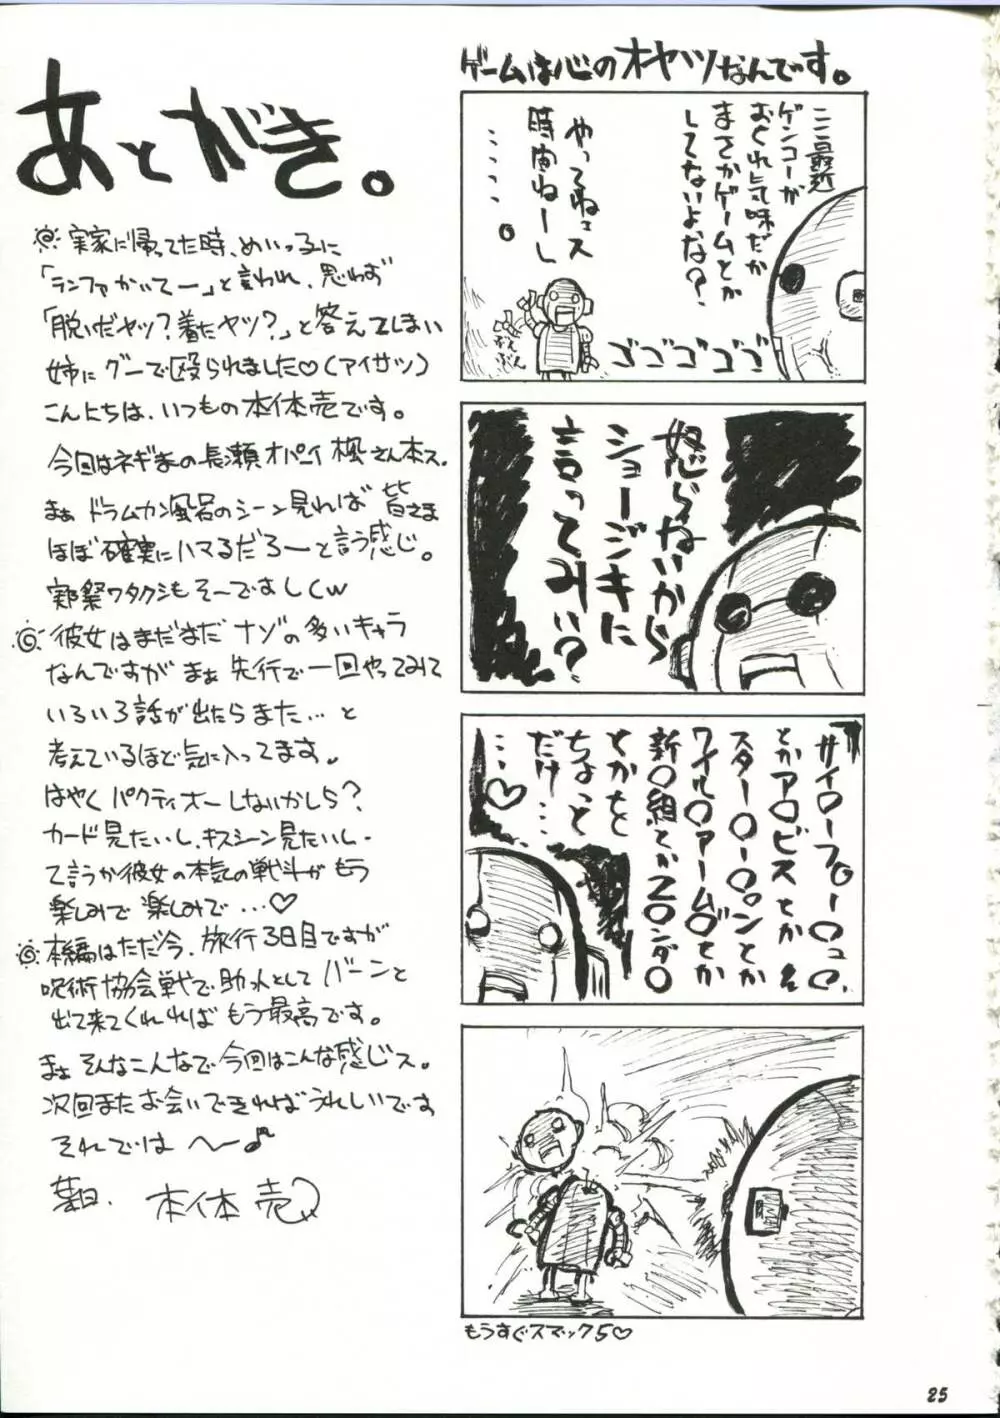 あとがき。
実家に帰ってた時、めいっ子に
「ランファかいてー」と言われ、思わず
「脱いだヤツ?着たヤツ?」と答えてしまい
姉にグーで殴られました♡(アイサツ)
こんにちは、いつもの本体売です。
今回はネギまの長瀬オパーイ楓さん本ス。
まぁドラムカン風呂のシーン見れば皆さま
ほぼ確実にハマるだろーと言う感じ。
実際ワタクシもそーですしくw
彼女はまだまだナゾの多いキャラ
なんですがまぁ先行で一回やってみて
いろいろ話が出たらまた…と
考えているほど気に入ってます。
はやくパクティオーしないかしら?
カード見たいし、キスシーン見たいし、
て言うか彼女の本気の戦斗がもう
楽しみで楽しみで…♡
本編はただ今、旅行3日目ですが
呪術協会戦で助っ人としてバーンと
出て来てくれればもう最高です。
まぁそんなこんなで今回はこんな感じス。
次回またお会いできればうれしいです
それではへ〜♪
本体売
ゲームは心のオヤツなんです。
ここ最近
ゲンコーが
おくれ気味だか
まさかゲームとか
してないよな?
やってねェス
時間ねーし
……。
ぶんぶん
ゴゴゴゴゴ
怒らないから
ショージキに
言ってみぃ?
サイ〇ーフ〇ー〇ュ〇、
とかア〇ビスとか
スター〇ー〇ンとか
ワイル〇アームズとか
新〇組とかZ〇ンダ〇
とかを
ちょっと
だけ…
…♡
もうすぐスマック5♡
25